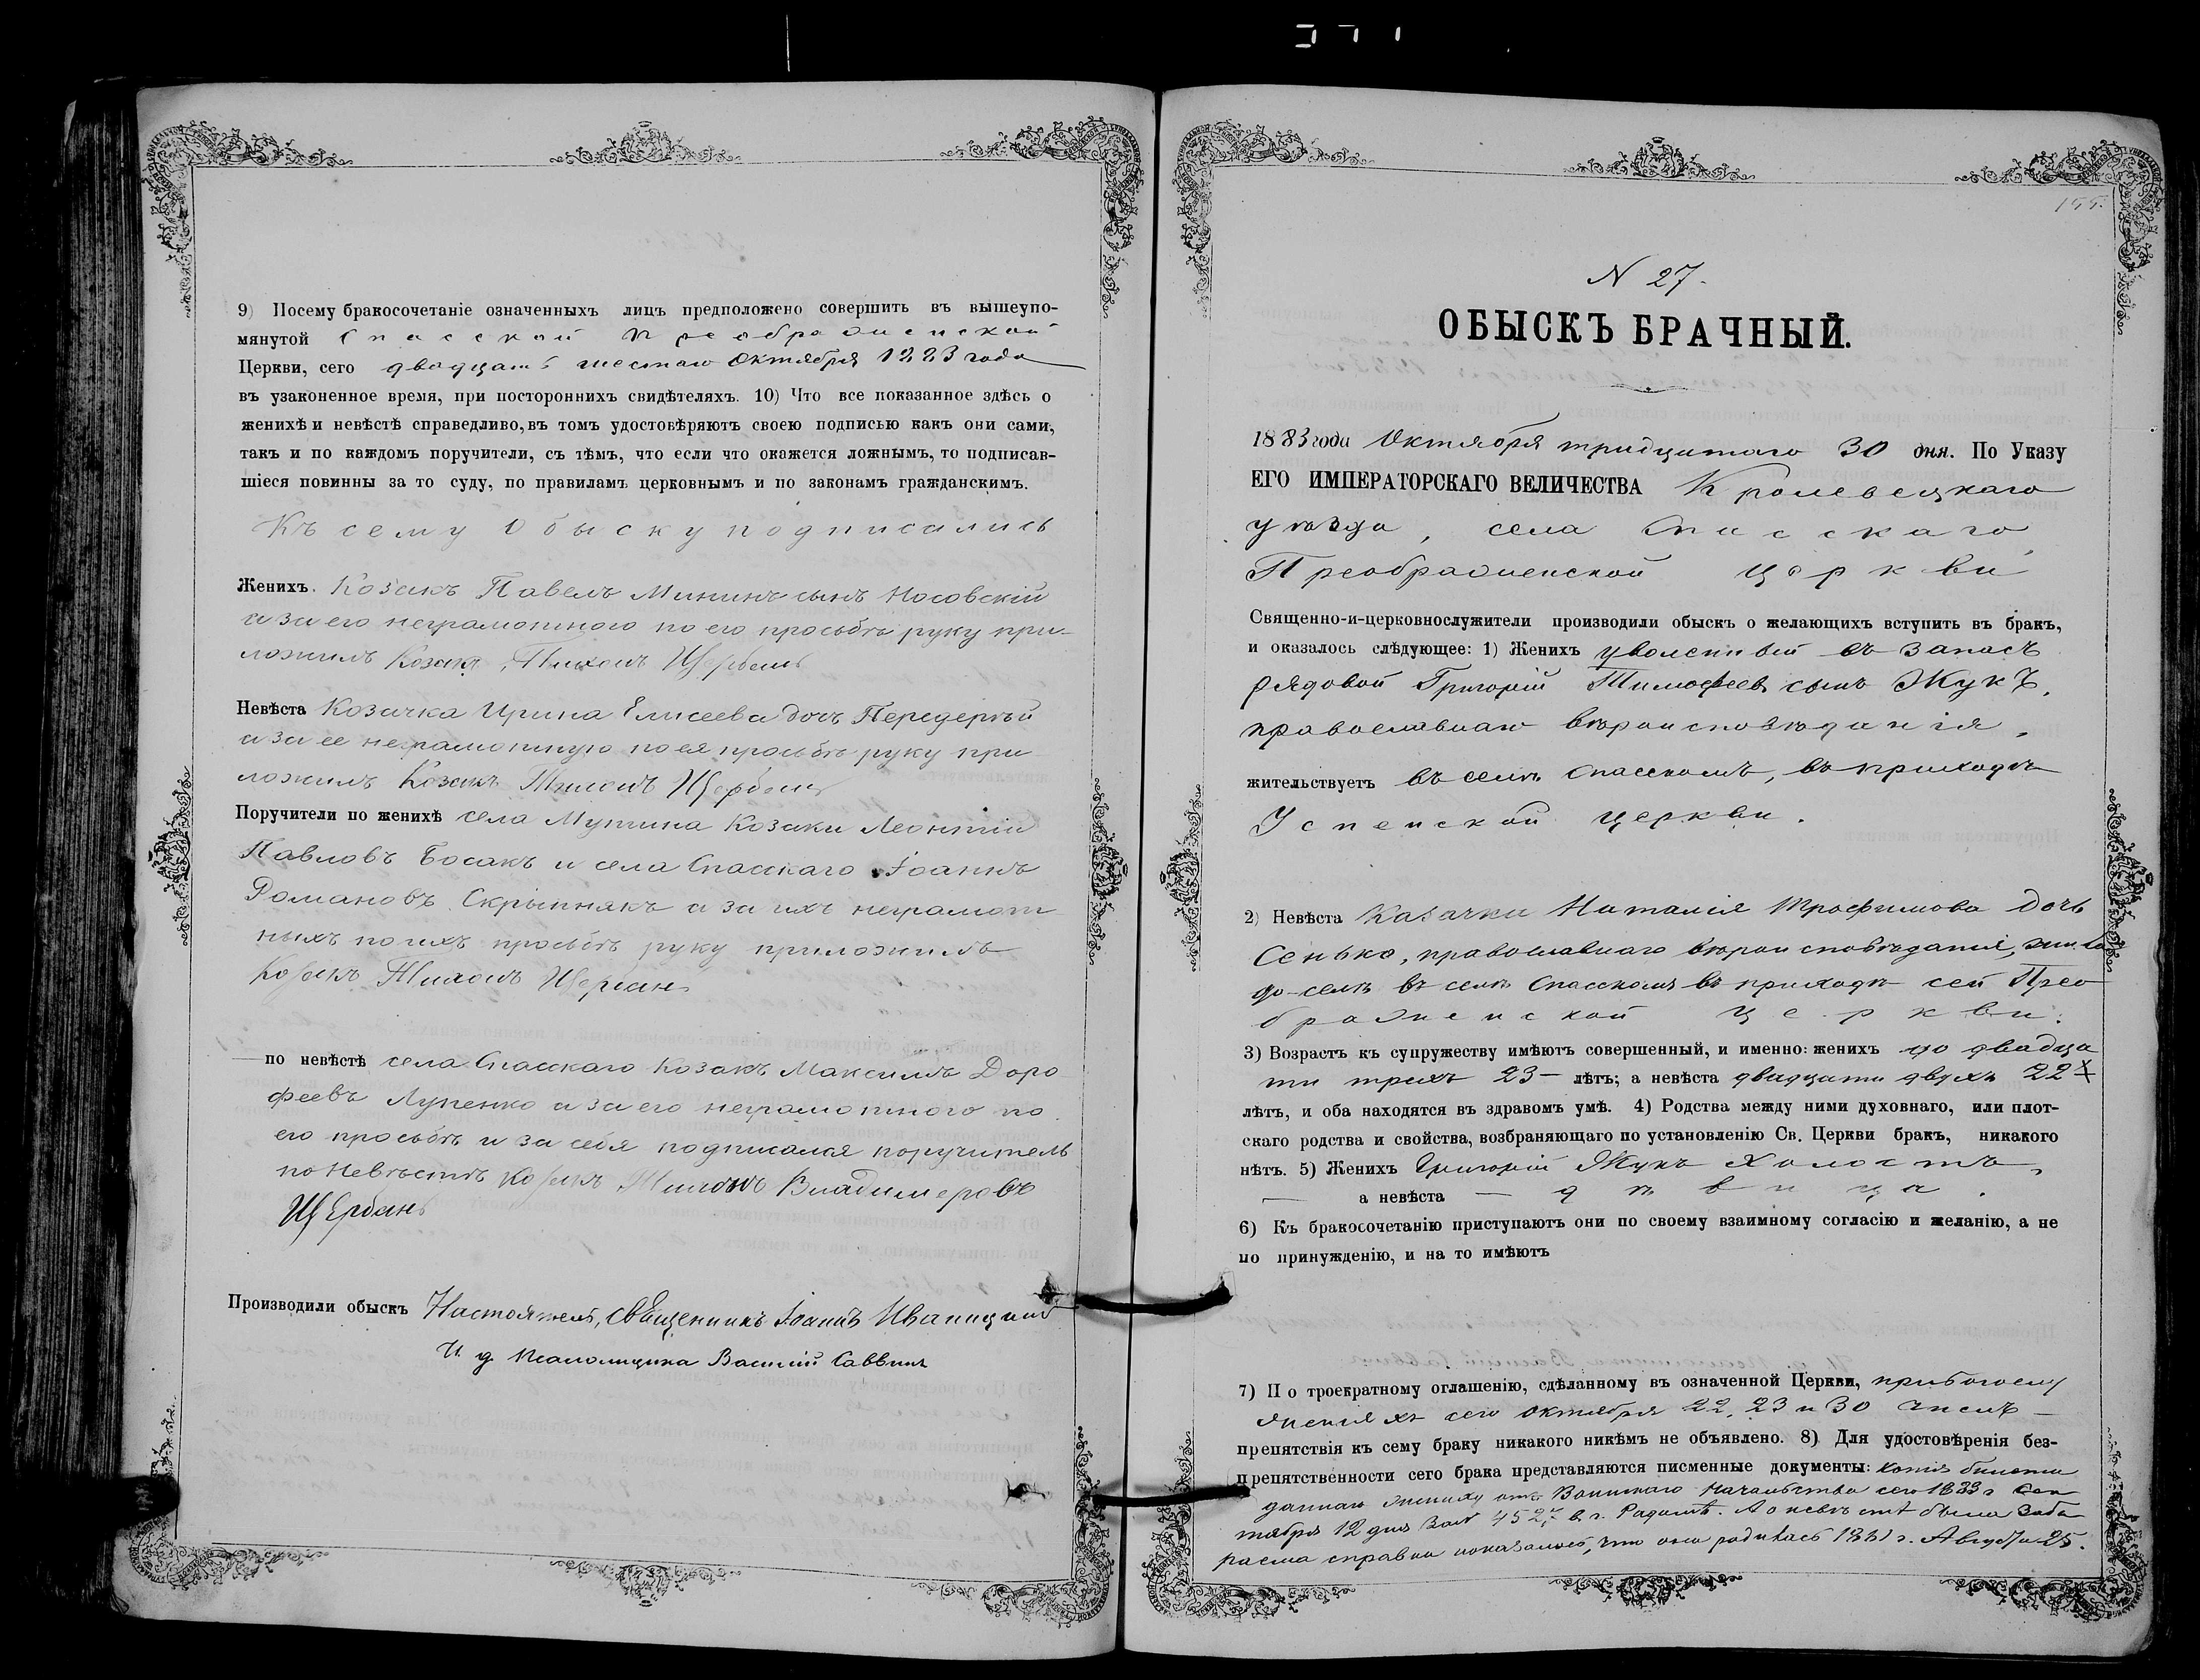 9) Посему бракосочетаніе означенныхъ лицъ предположено совершить въ вышеупо-
мянутой Спасской Преображенской
Церкви, сего двадцать шестаго Октября 1883 года
въ узаконенное время, при постороннихъ свидѣтеляхъ. 10) Что все показанное здѣсь о
женихѣ и невѣстѣ справедливо, въ томъ удостовѣряютъ своею подписью какъ они сами,
такъ и по каждомъ поручители, съ тѣмъ, что если что окажется ложнымъ, то подписав-
шіеся повинны за то суду, по правиламъ церковнымъ и по законамъ гражданскимъ.
Къ сему Обыску подписались
Женихъ. Козакъ Павелъ Мининъ сынъ Носовскій
а за его неграмотного по его просьбѣ руку при-
ложилъ Козакъ Тихонъ Щербань
Невѣста Козачка Ирина Елисеева дочь Передерѣй
а за ее неграмотную по ея просьбѣ руку при
ложилъ Козакъ Тихонъ Щербань
Поручители по женихѣ села Мутина Козаки Леонтій
Павловъ Босакъ и села Спасскаго Іоаннъ
Романовъ Скрыпнякъ а за ихъ неграмот
ныхъ по ихъ просьбѣ руку приложилъ
Козакъ Тихонъ Щербань
по невѣстѣ села Спасскаго Козакъ Максимъ Доро
феевъ Лупенко а за его неграмотного по
его просьбѣ и за себя подписался поручитель
по Невѣстѣ Козакъ Тихонъ Владимеровъ
Щербань
Производили обыскъ Настоятель, священникъ Іоаннъ Иваницкій
И. д. Псаломщика Василій Саввичъ
155.
N 27.
ОБЫСКЪ БРАЧНЫЙ.
1883 года Октября тридцатаго 30 дня. По Указу
ЕГО ИМПЕРАТОРСКАГО ВЕЛИЧЕСТВА Кролевецкаго
уѣзда, села Спасскаго
Преображенской церкви
Священно-и-церковнослужители производили обыскъ о желающихъ вступить въ бракъ,
и оказалось слѣдующее: 1) Женихъ уволенный въ запасъ
рядовой Григорій Тимофеевъ сынъ Жукъ,
православнаго вѣроисповѣданія,
жительствуетъ въ селѣ Спасскомъ, въ приходѣ
Успенской церкви.
2) Невѣста Казачка Наталія Трофимова дочь
Сенько, православнаго вѣроисповѣданія, жила
до-селѣ въ селѣ Спасскомъ въ приходѣ сей Прео
браженской церкви.
3) Возрастъ къ супружеству имѣютъ совершенный, и именно: женихъ до двадца
ти трехъ 23 – лѣтъ; а невѣста двадцати двухъ 22
лѣтъ, и оба находятся въ здравомъ умѣ. 4) Родства между ними духовнаго, или плот-
скаго родства и свойства, возбраняющаго по установленію Св. Церкви бракъ, никакого
нѣтъ. 5) Женихъ Григорій Жукъ холостъ,
— а невѣста — дѣвица.
6) Къ бракосочетанію приступаютъ они по своему взаимному согласію и желанію, а не
по принужденію, и на то имѣютъ
7) По троекратному оглашенію, сдѣланному въ означенной Церкви, при богослу
женіяхъ сего Октября 22, 23 и 30 чиселъ —
препятствія къ сему браку никакого никѣмъ не объявлено. 8) Для удостовѣренія без-
препятственности сего брака представляются писменные документы: копія билета
даннаго жениху отъ Воинскаго Начальства сего 1883 г Сен
тября 12 дня за N 4527 в г. Радомѣ. А о невѣстѣ была заби
раема справка показалось, что она родилась 1861 г. Августа 25.